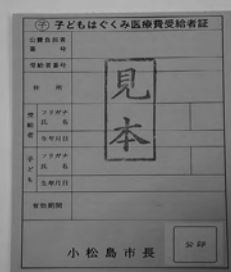 子 子どもはぐくみ医療費受給者証
公費負担者
番号
受給者番号
住所
受給者
フリガナ
氏名
生年月日
子ども
フリガナ
氏名
生年月日
有効期間
見本
小松島市長
公印